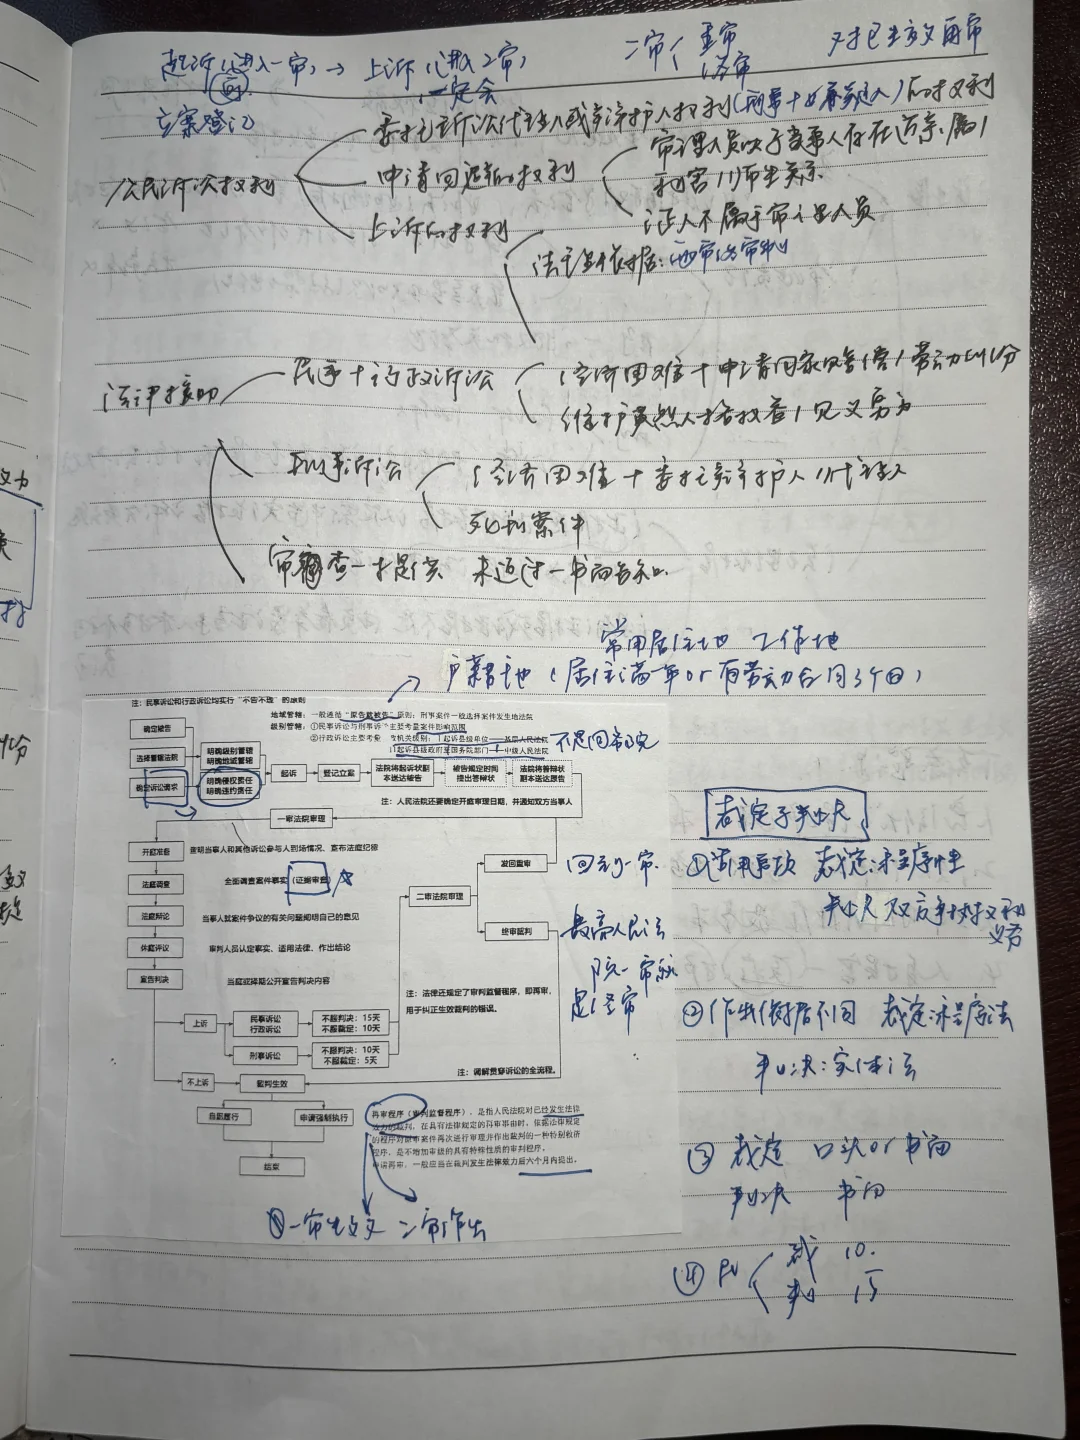 起诉(进入一审) → 上诉(进入2审)
一定会
立案登记
二审 重审
终审
对已生效再审
公民诉讼权利
委托诉讼代理人或辩护人权利
的权利
申请回避的权利
审理人员以与当事人存在近亲属/
利害/师生关系
证人不属于审理人员
上诉的权利
法理依据:两审终审制
法律援助
民事+行政诉讼
经济困难+申请国家赔偿/劳动纠纷
维护英烈人格权益/见义勇为
刑事诉讼
经济困难+委托辩护人/代理人
死刑案件
审查—提供 未通过—书面告知
常用居住地 工作地
户籍地(居住满一年or有劳动合同3个月)
注:民事诉讼和行政诉讼均实行“不告不理”的原则
地域管辖:一般遵循“原告就被告”原则;刑事案件一般选择案件发生地法院
级别管辖:①民事诉讼与刑事诉讼主要考量案件影响范围
②行政诉讼主要考量 机关级别:起诉县级单位—基层人民法院
起诉县级政府或国务院部门—中级人民法院
确定被告
选择管辖法院
确定诉讼请求
明确级别管辖
明确地域管辖
明确侵权责任
明确违约责任
起诉
登记立案
法院将起诉状副本送达被告
被告规定时间提出答辩状
法院将答辩状副本送达原告
注:人民法院还要确定开庭审理日期,并通知双方当事人
一审法院审理
开庭准备
查明当事人和其他诉讼参与人到场情况、宣布法庭纪律
法庭调查
全面调查案件事实(证据审查)
法庭辩论
当事人就案件争议的有关问题阐明自己的意见
休庭评议
审判人员认定事实、适用法律、作出结论
宣告判决
当庭或择期公开宣告判决内容
二审法院审理
发回重审
终审裁判
回到一审
最高人民法
院一审就
是终审
上诉
民事诉讼
行政诉讼
不服判决:15天
不服裁定:10天
刑事诉讼
不服判决:10天
不服裁定:5天
注:法律还规定了审判监督程序,即再审,
用于纠正生效裁判的错误。
注:调解贯穿诉讼的全流程。
不上诉
裁判生效
自愿履行
申请强制执行
结束
再审程序(审判监督程序),是指人民法院对已经发生法律
效力的裁判,在具有法律规定的再审事由时,依据法律规定
的程序对原审案件再次进行审理并作出裁判的一种特别救济
程序,是不增加审级的具有特殊性质的审判程序。
申请再审,一般应当在裁判发生法律效力后六个月内提出。
一审生效 二审作出
裁定与判决
①适用事项 裁定:程序性
判决 双方争议权利
义务
②作出依据不同 裁定:程序法
判决:实体法
③ 裁定 口头or书面
判决 书面
④ 民 裁 10.
判 15